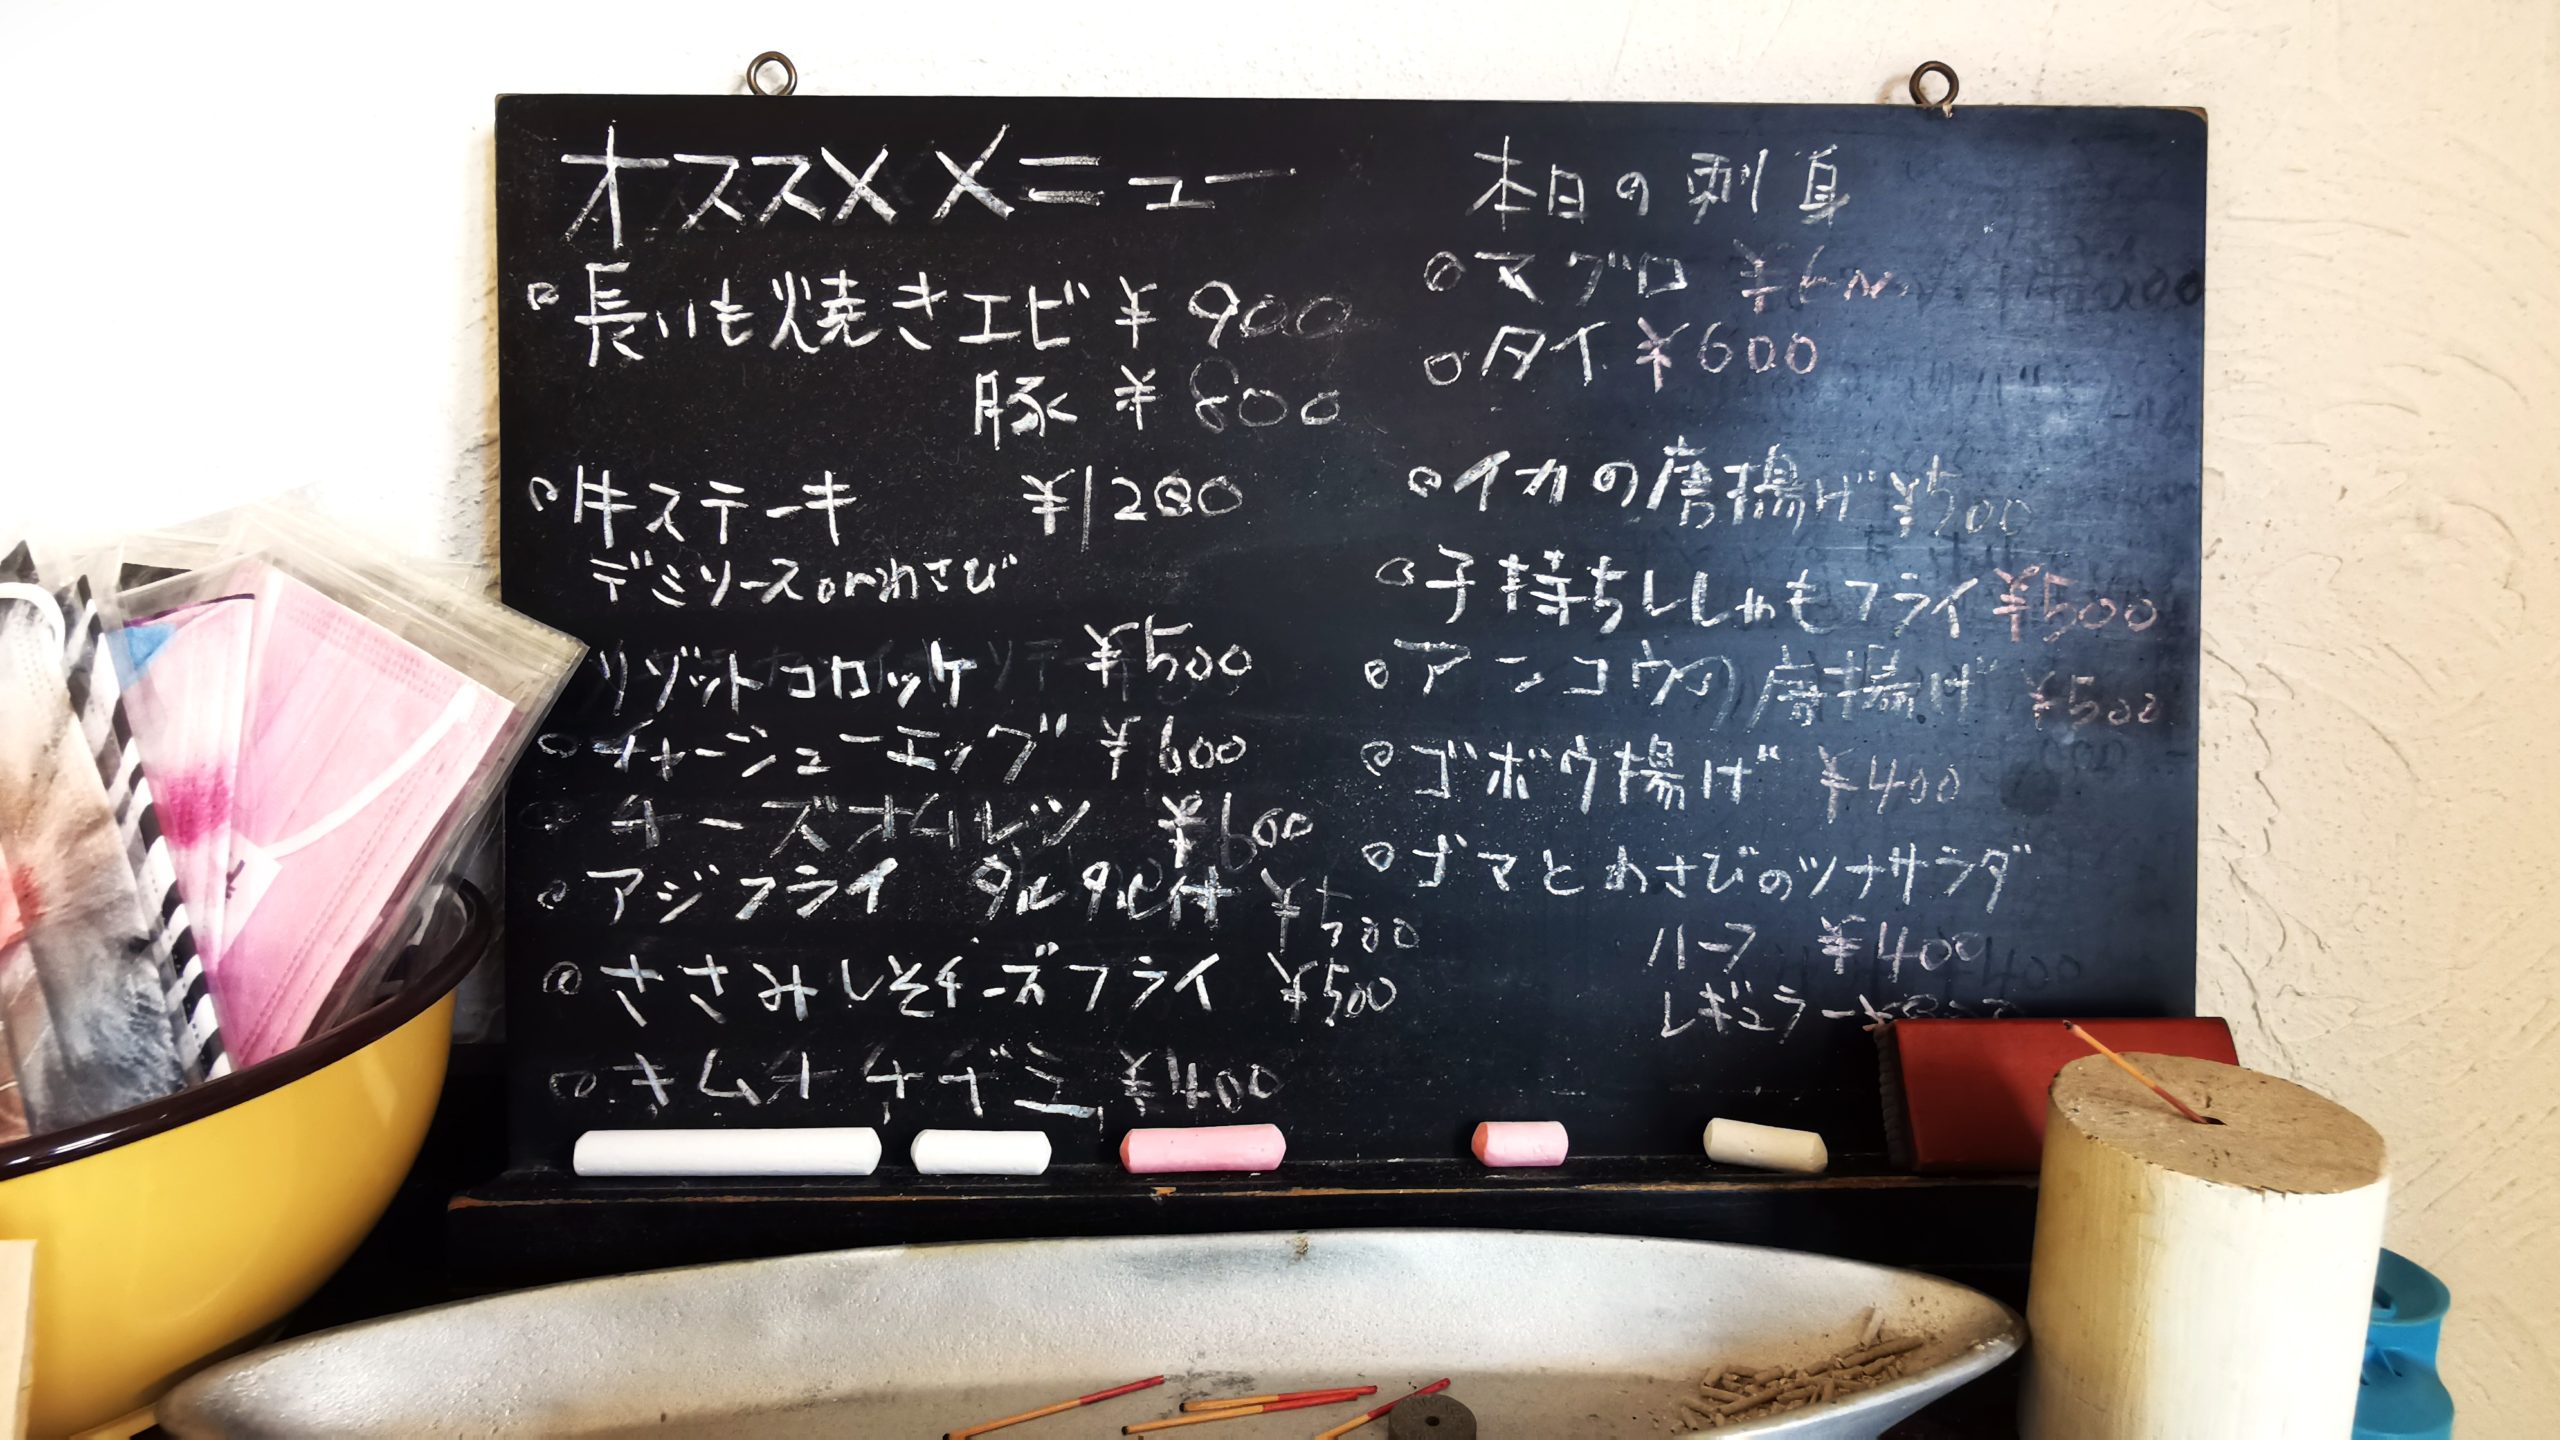 オススメメニュー
長いも焼きエビ ¥900
豚 ¥800
牛ステーキ ¥1200
デミソースorわさび
リゾットコロッケ ¥500
チャーシューエッグ ¥600
チーズオムレツ ¥600
アジフライ タルタル付 ¥500
ささみしそチーズフライ ¥500
キムチチヂミ ¥400
本日の刺身
マグロ
タイ ¥600
イカの唐揚げ ¥500
子持ちししゃもフライ ¥500
アンコウの唐揚げ ¥500
ゴボウ揚げ ¥400
ゴマとわさびのツナサラダ
ハーフ ¥400
レギュラー